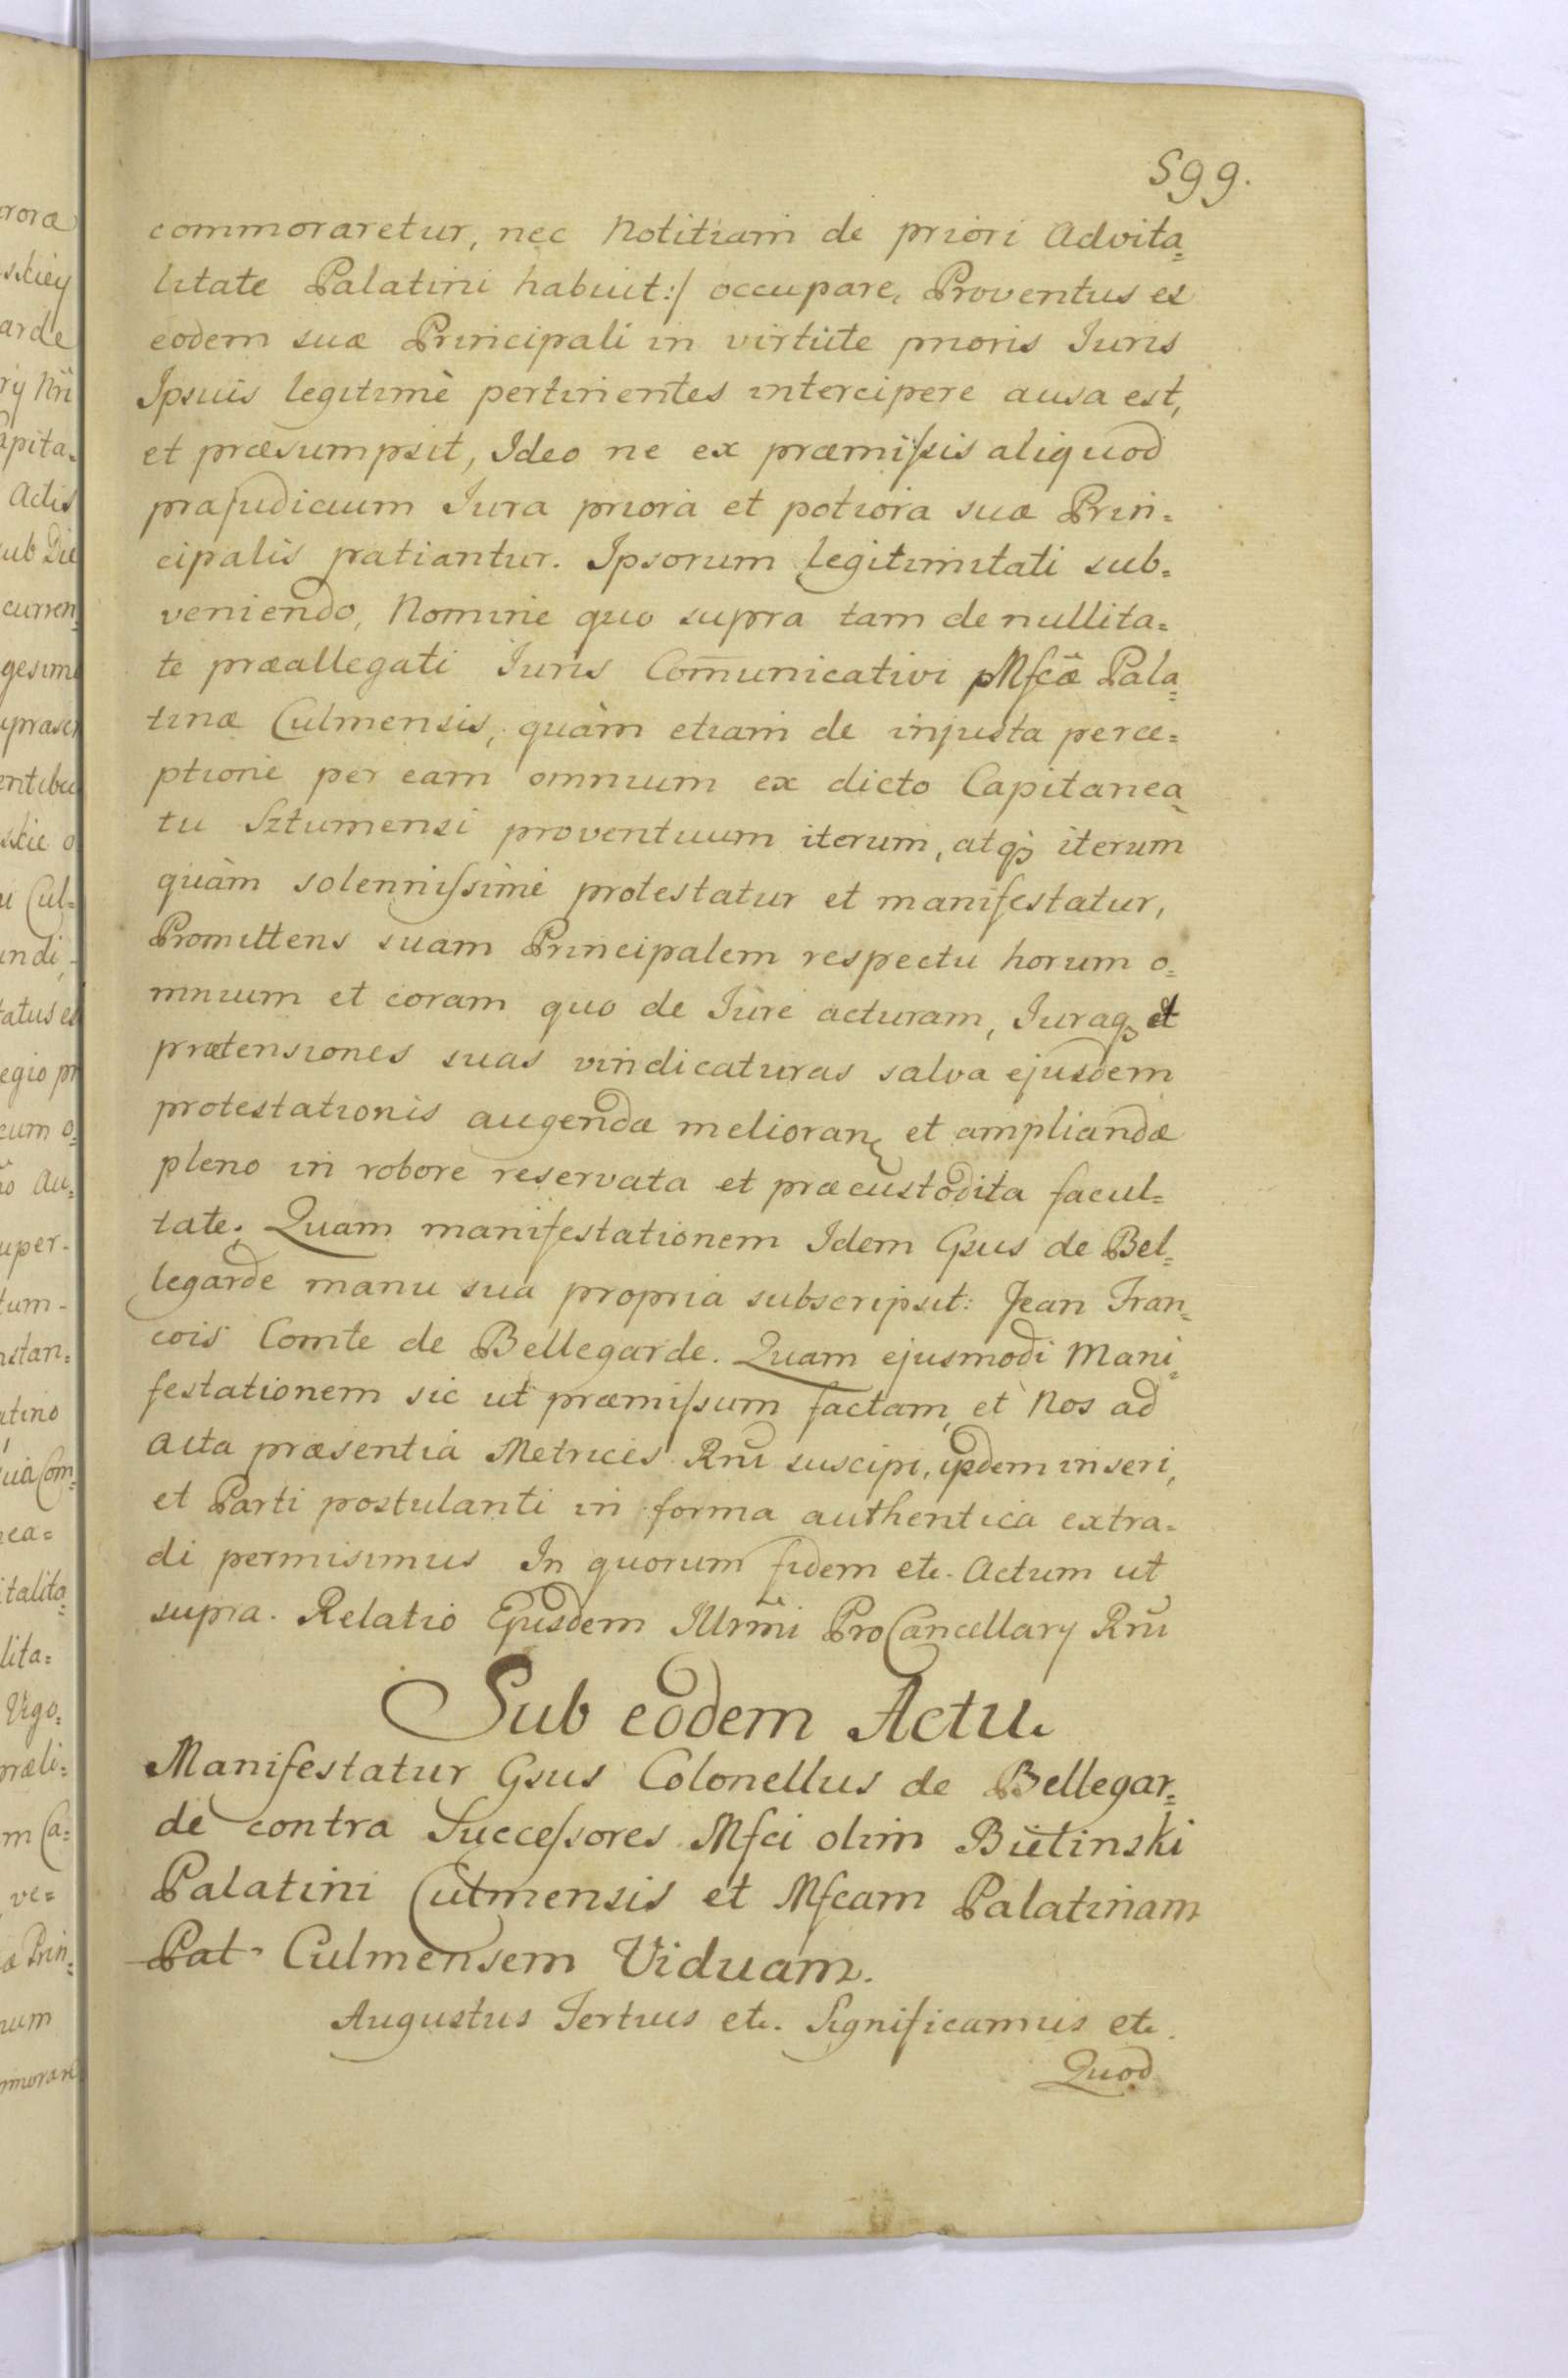 599.
commoraretur, nec Notitiam de priori Advita=
litate Palatini habuit:/ occupare, Proventus ex
eodem suæ Principali in virtute prioris Iuris
Ipsius legitimè pertinentes intercipere ausa est,
et præsumpsit, Ideo ne ex præmissis aliquod
præjudicium Iura priora et potiora suæ Prin=
cipalis patiantur. Ipsorum legitimitati sub=
veniendo, Nomine quo supra tam de nullita=
te præallegati Iuris Com̄unicativi Mfcæ Pala=
tinæ Culmensis, quàm etiam de injusta perce=
ptione per eam omnium ex dicto Capitanea=
tu Sztumensi proventuum iterum, atq; iterum
quàm solennissimè protestatur et manifestatur,
Promittens suam Principalem respectu horum o=
mnium et coram quo de Iure acturam, Iuraq; et
prætensiones suas vindicaturas salva ejusdem
protestationis augendæ melioran et ampliandæ
pleno in robore reservata et præcustodita facul=
tate. Quam manifestationem Idem Gsus de Bel=
legarde manu sua propria subscripsit: Jean Fran=
cois Comte de Bellegarde. Quam ejusmodi Mani=
festationem sic ut præmissum factam, et Nos ad
Acta præsentia Metrices Rni suscipi, ijsdem inseri,
et Parti postulanti in forma authentica extra=
di permisimus In quorum fidem etc. Actum ut
supra. Relatio Ejusdem Illrmi ProCancellary Rni
Sub eodem Actu.
Manifestatur Gsus Colonellus de Bellegar=
de contra Successores Mfci olim Bielinski
Palatini Culmensis et Mfcam Palatinam
Pal Culmensem Viduam.
Augustus Tertius etc. Significamus etc.
Quod